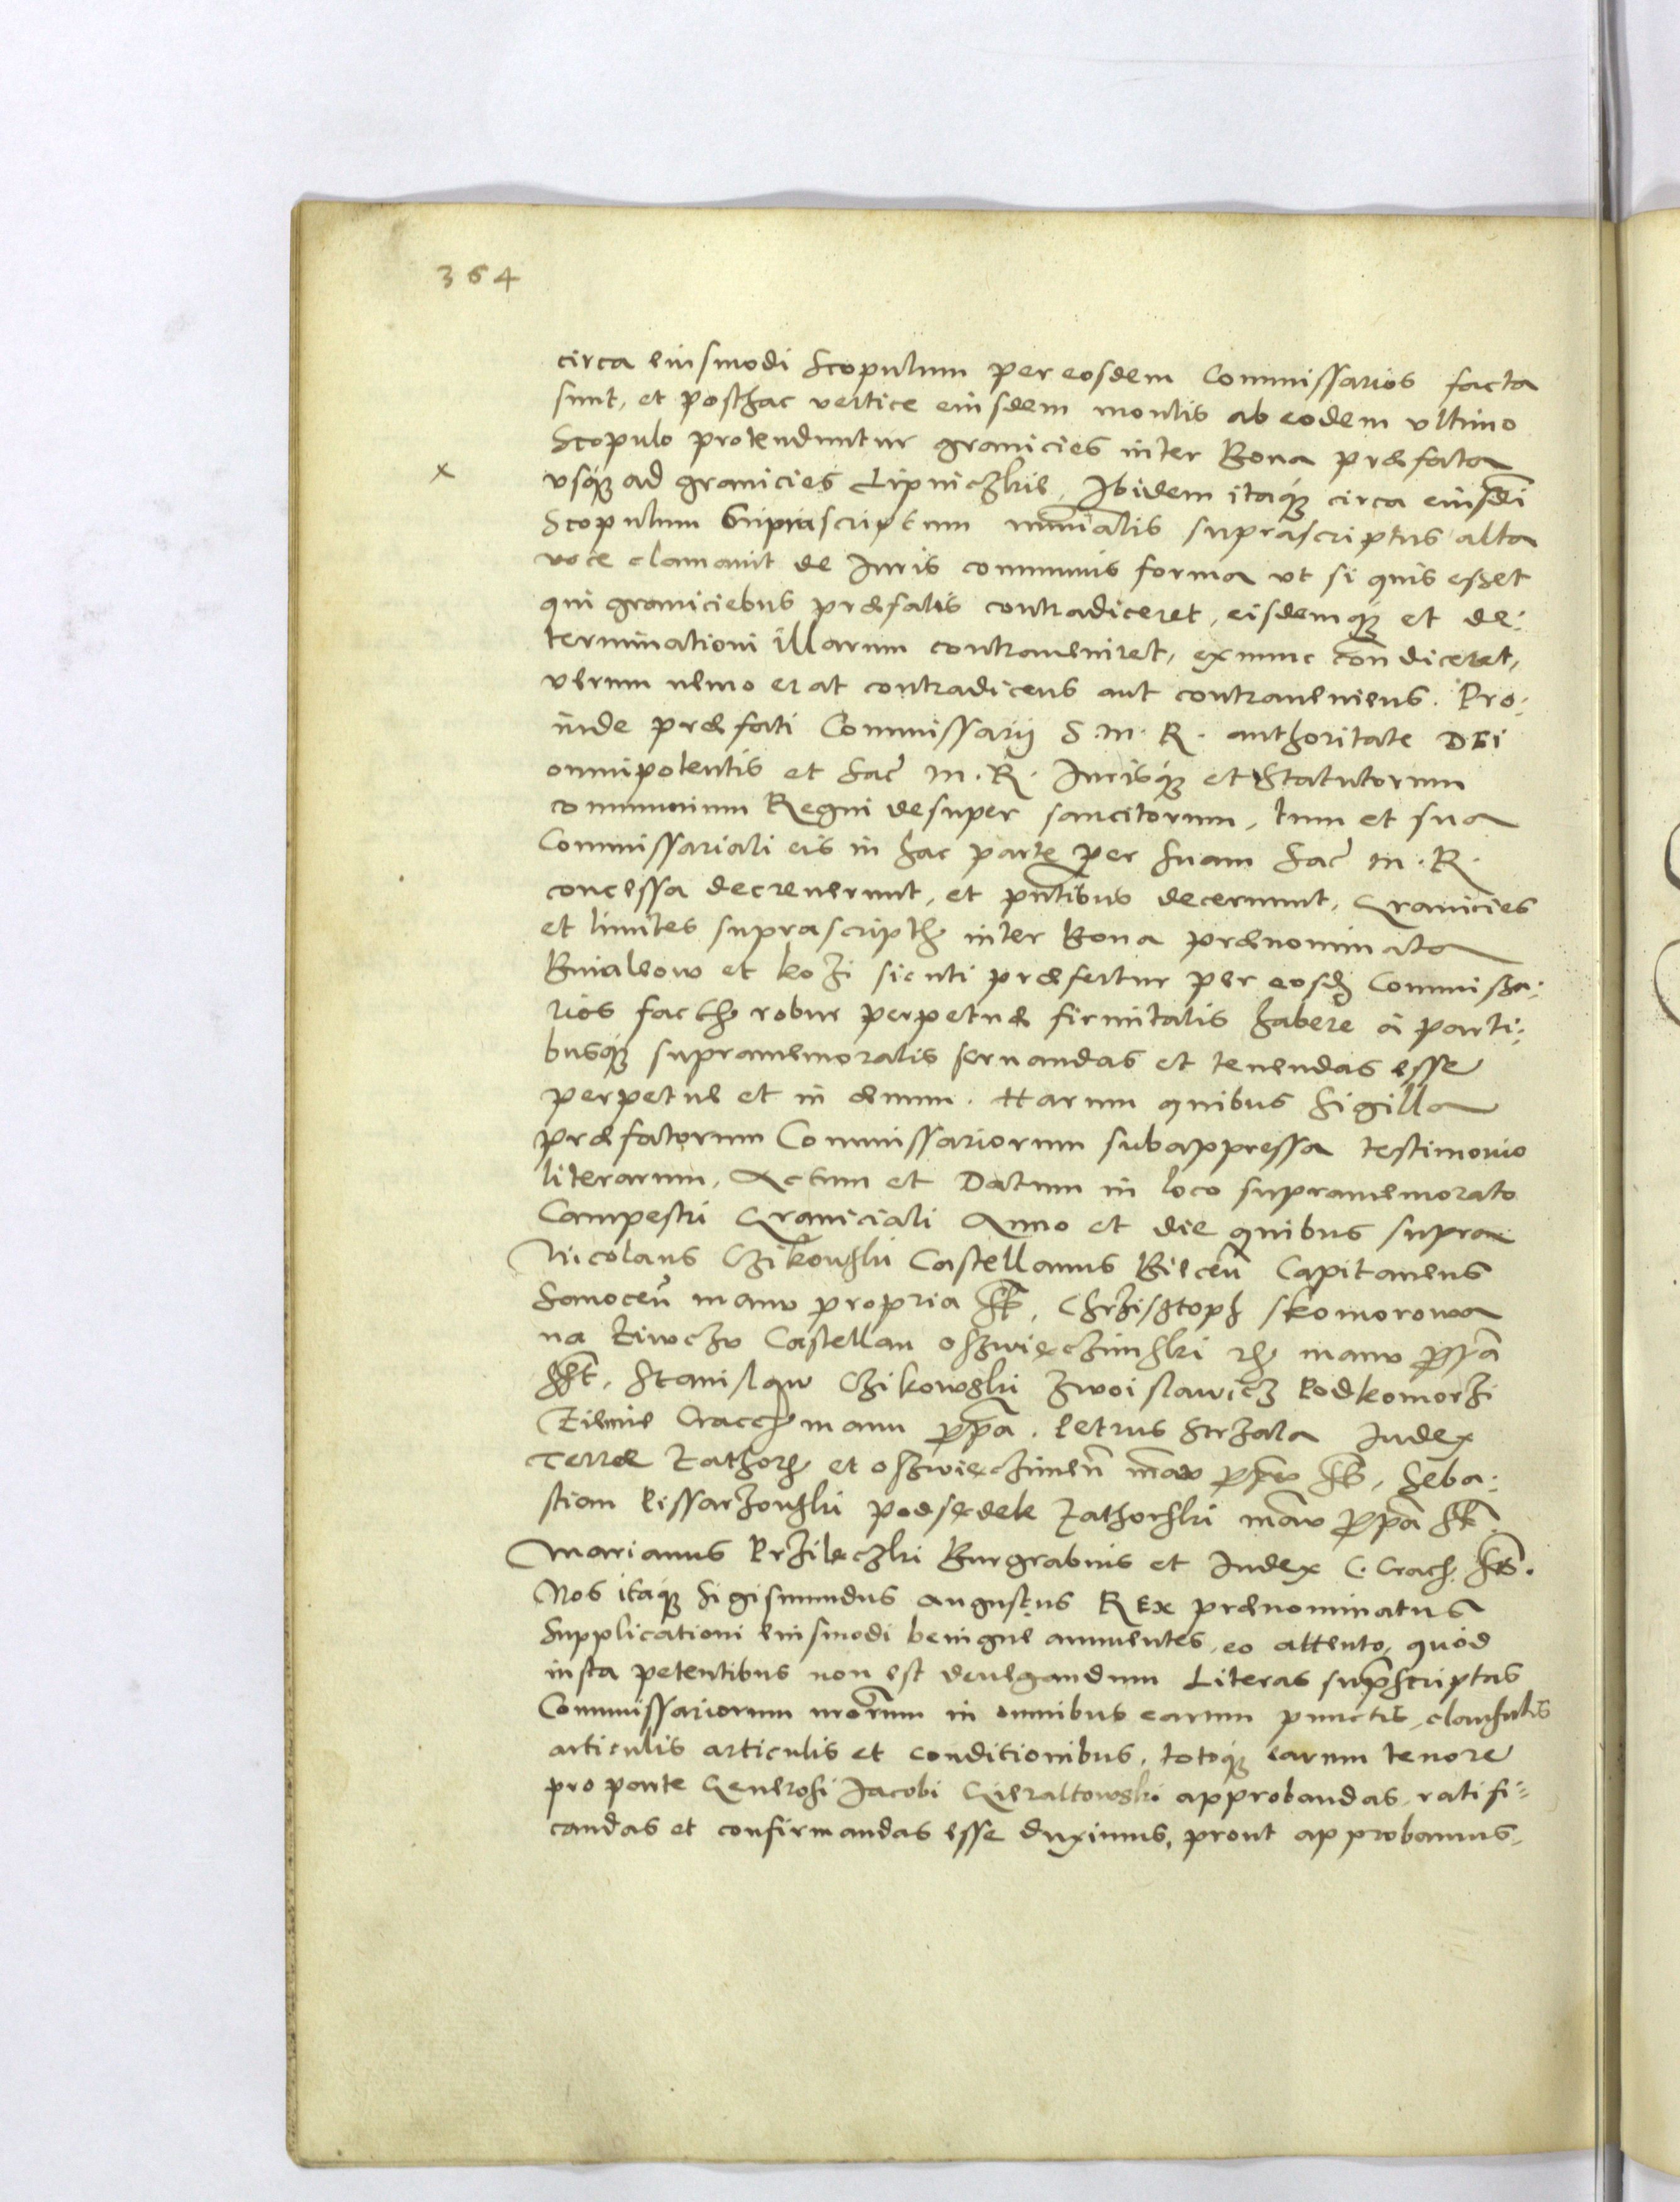 364
circa eiusmodi Scopulum per eosdem Commissarios facta
sunt, et posthac vertice eiusdem montis ab eodem vltimo
Scopulo protenduntur granicies inter Bona præfata
x
vsq3 ad granicies Lipniczkie, Ibidem itaq3 circa eiusdi
Scopulum supra scriptum suprascriptus alta
voce clamauit de Iuris communis forma vt si quis esset
qui graniciebus præfatis contradiceret, eisdemq3 et de:
terminationi illarum contraueniret, ex nunc condiceret,
verum nemo erat contradicens aut contraueniens. Pro:
inde præfati Commissarij S. M. R. authoritate DEI
omnipotentis et Sac M. R. Iurisq3 et Statutorum
communium Regni desuper sancitorum, tum et sua
Commissariali eis in hac parte per Suam Sac M. R.
concessa decreuerunt, et pntibus decernunt, Granicies
et limites suprascripth inter Bona prænominata
Buiakow et kozi sicuti præfertur per eosd Commissa:
rios facth robur perpetuæ firmitatis habere à parti:
busq3 supramemoratis seruandas et tenendas esse
perpetue et in æuum. Harum quibus Sigilla
præfatorum Commissariorum subappressa testimonio
literarum, Actum et Datum in loco supramemorato
Campestri Graniciali Anno et die quibus supra
Nicolaus Czikowski Castellanus Biecen Capitaneus
Sanocen manu propria sst, Chrzisstoph skomorowa
na Ziwczu Castellan osswieczimski rh manu ppa
sst, Stanislaw Czikowski zwoislawicz Podkomorzi
Ziemie Cracch manu ppa. Petrus Strzala Iudex
Terræ Zathorh et osswieczimen manu ppa sst, Seba:
stian Pissarzowski podsedek Zathorski manu ppa sst
Marianus Przileczki Burgrabius et Iudex C. Crach. sst.
Nos itaq3 Sigismundus Augustus REx prænominatus
Supplicationi eiusmodi benigne annuentes, eo attento, quòd
iusta petentibus non est denegandum Literas suprascriptas
Commissariorum nrorum in omnibus earum punctis, clausulis
articulis articulis et conditionibus, totoq3 earum tenore
pro parte Generosi Iacobi Gieraltowski approbandas, ratifi:
candas et confirmandas esse duximus, prout approbamus,